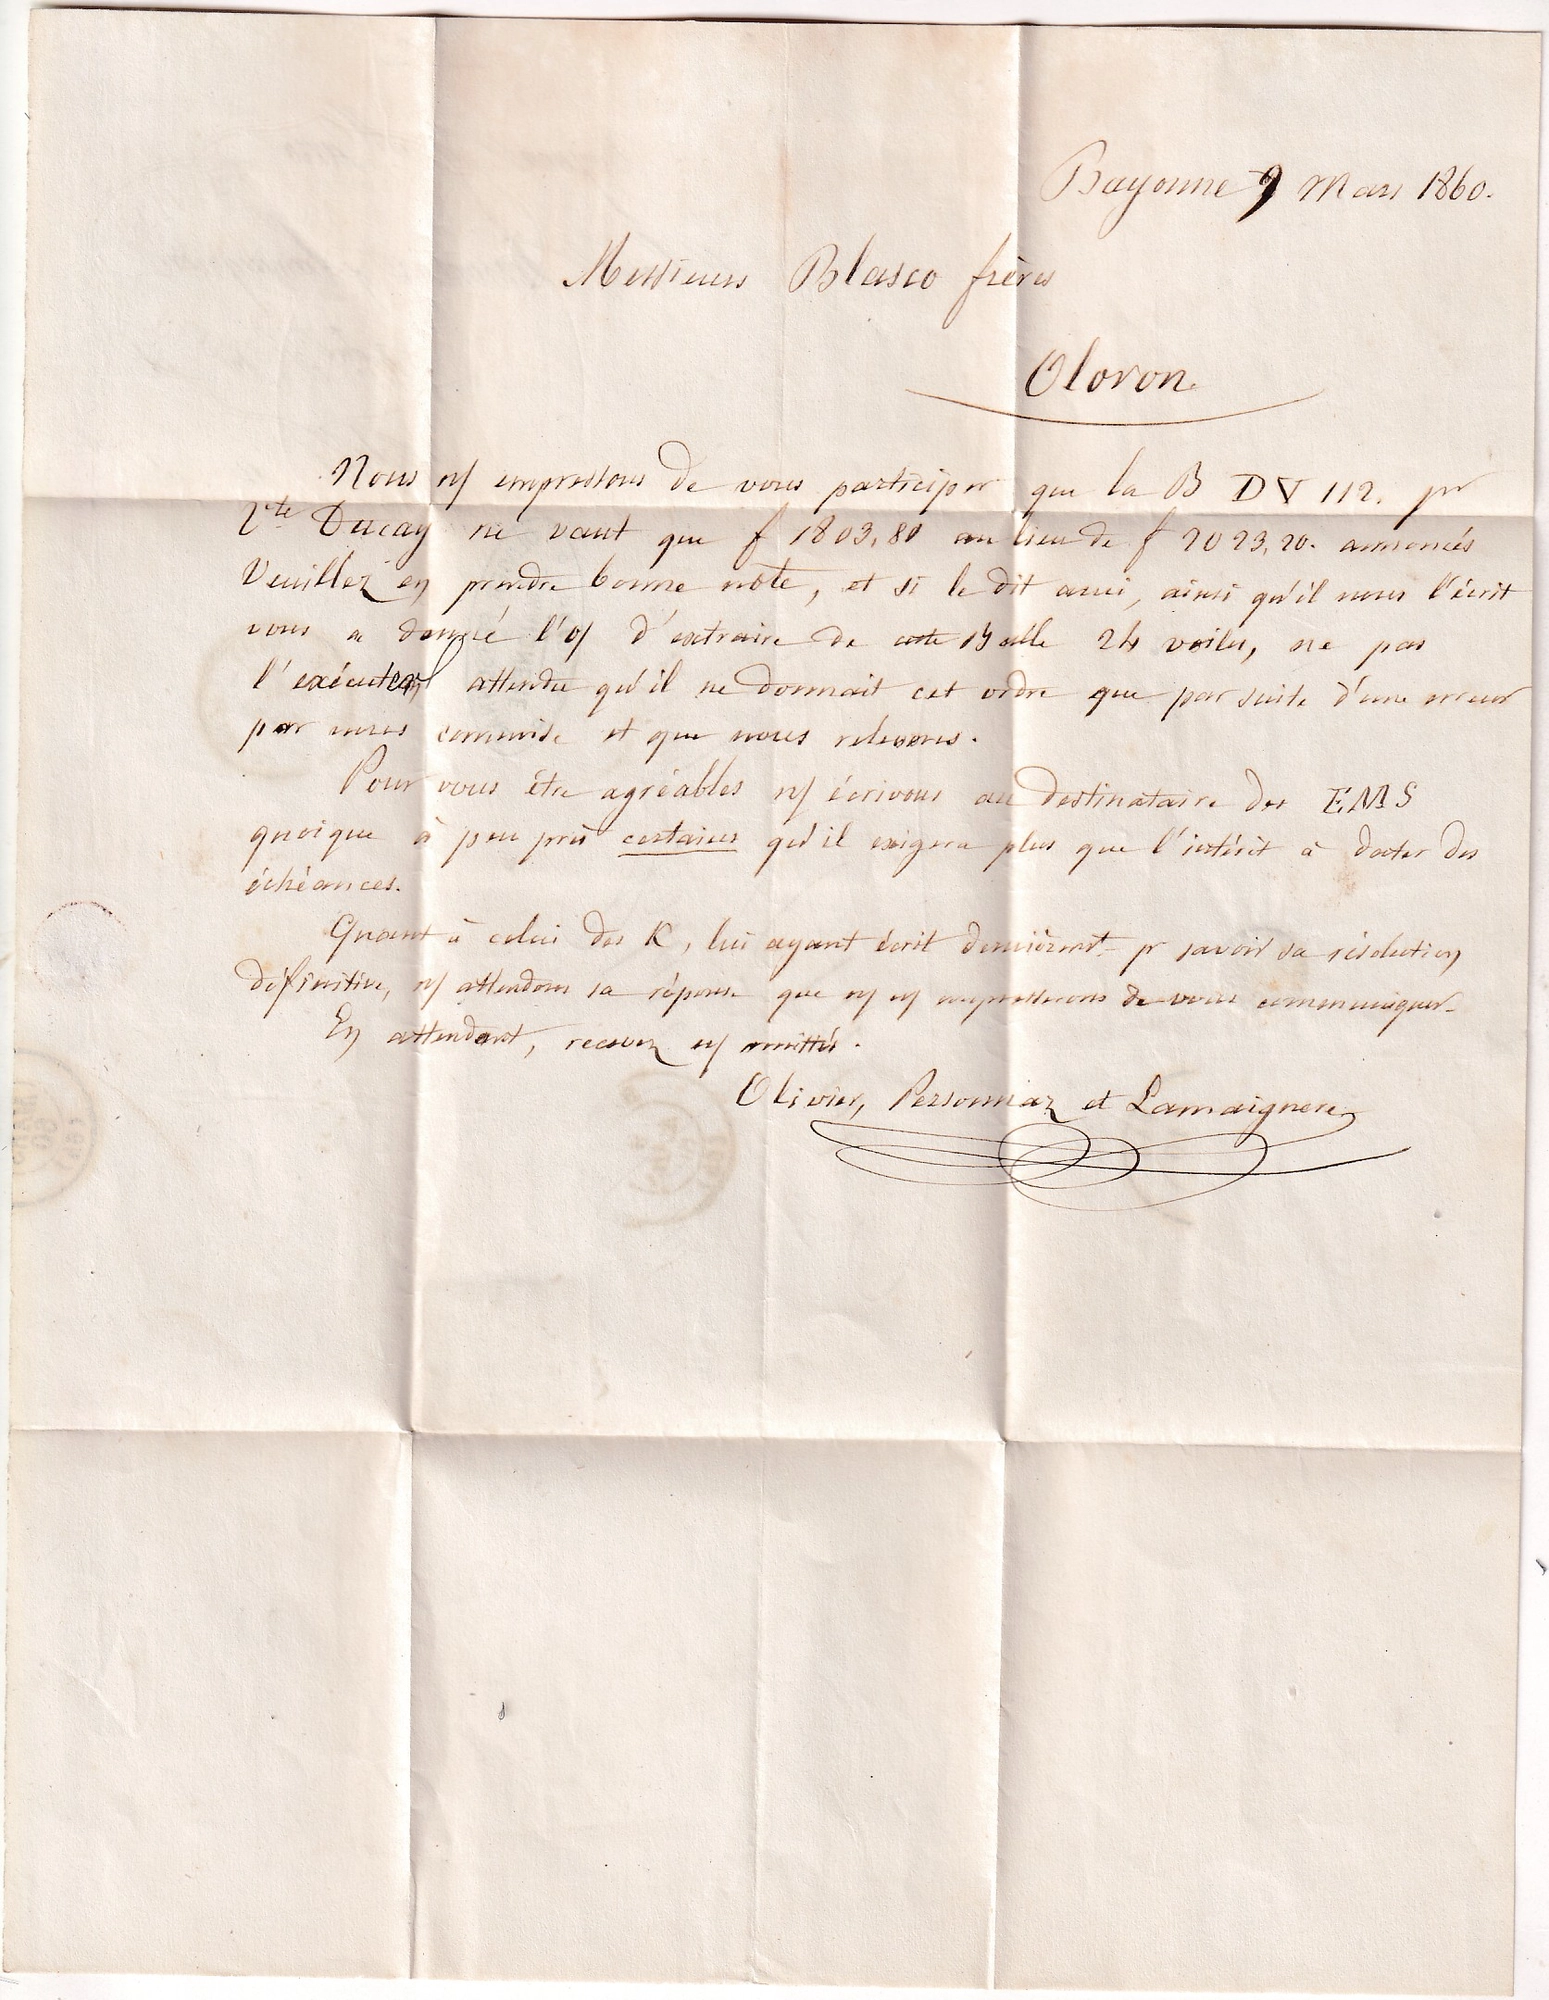 Bayonne 9 Mars 1860.
Messieurs Blasco frères
Oloron
Nous n/ empressons de vous participer que la B DV 112. pr
Vte Ducay ne vaut que f 1803,80 au lieu de f 2023,20. annoncés
Veuillez en prendre bonne note, et si le dit ami, ainsi qu'il nous l'écrit
vous a donné l'o/ d'extraire de cette Balle 24 voiles, ne pas
l'exécuter attendu qu'il ne donnait cet ordre que par suite d'une erreur
par nous commise et que nous relevons.
Pour vous être agréables n/ écrivons au destinataire des EMS
quoique à peu près certains qu'il exigera plus que l'intérêt à dater des
échéances.
Quant à celui des K, lui ayant écrit dernièremt pr savoir sa résolution
définitive, n/ attendons sa réponse que n/ n/ empresserons de vous communiquer.
En attendant, recevez n/ amitiés.
Olivier, Personnaz et Lamaignere